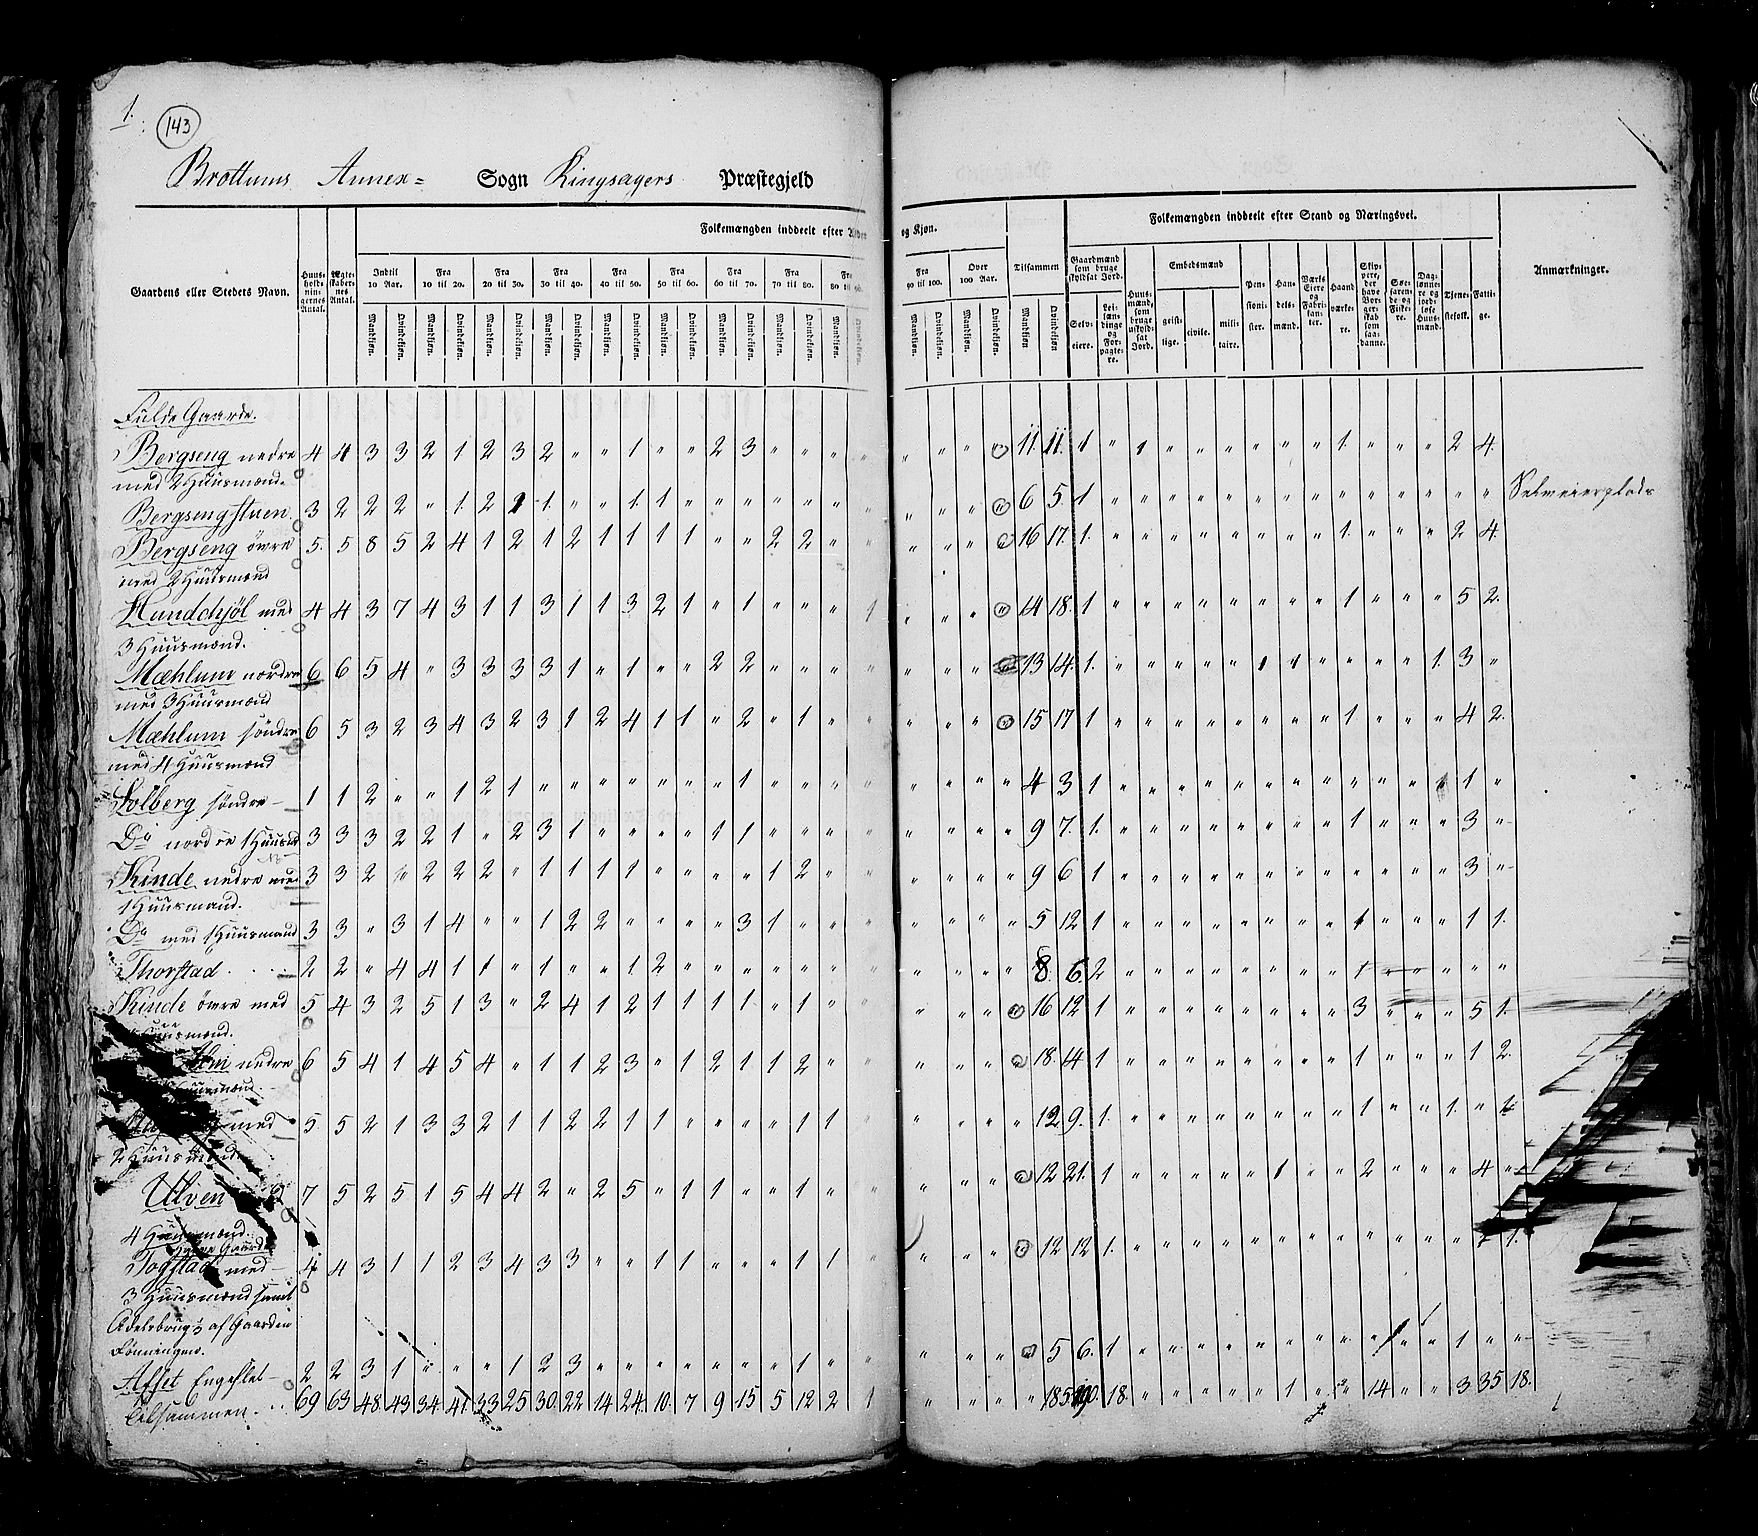 1.
143
Brottums Annex= Sogn Ringsagers Præstegjeld
Folkemængden inddeelt efter Alder
og Kjøn.
Folkemængden inddeelt efter Stand og Næringsvei.
Gaardens eller Stedets Navn.
Huus-holdnin-gernes Antal.
Ægte-skaber-nes Antal.
Indtil 10 Aar.
Fra 10 til 20.
Fra 20 til 30.
Fra 30 til 40.
Fra 40 til 50.
Fra 50 til 60.
Fra 60 til 70.
Fra 70 til 80.
Fra 80 til 90.
Fra 90 til 100.
Over 100 Aar.
Tilsammen
Mandkjøn. Qvindekjøn.
Gaardmænd som bruge skyldsat Jord.
Selveiere.
Leilændinge og Forpagtere.
Huusmænd, som bruge uskyldsat Jord.
Embedsmænd
geistlige.
civile.
militaire.
Pensionister.
Handelsmænd.
Værks Eiere og Fabrikanter.
Haandværkere.
Skippere, der have Borgerskab som saadanne.
Søefarende og Fiskere.
Daglønnere og jordløse Huusmænd.
Tjenestefolk.
Fattige.
Anmærkninger.
Fulde Gaarde.
Bergseng nedre 4 4 3 3 2 1 2 3 2 " " 1 " " 2 3 " " " " " " " " 11 11. 1 " 1 " " " " " " 1. " " " 2 4.
med 2 Huusmænd.
Bergsengstuen 3 2 2 2 " 1. 2 1 1. " " 1. 1 " " " " " " " " " " " 6 5. 1 " " " " " " " " " " " " " "
Bergseng övre 5. 5 8 5 2 4 1 2 1 2 1 1 1 1 " " 2 2 " " " " " " 16 17. 1. " " " " " " " " 1. " " " 2 4.
med 2 Huusmænd
Hundehjöl med 4 4 3 7 4 3 1 1 3 1 1 3 2 1 " 1 " " " 1 " " " " 14 18. 1 " " " " " " " " 1 " " " 5 2.
3 Huusmænd.
Mæhlum nordre 6 6 5 4 " 3 3 3 3 1 " 1 " " 2 2 " " " " " " " 13 14. 1. " " " " " 1 1 " " " " 1. 3 "
med 3 Huusmænd
Mæhlum söndre 6 5 3 2 3 4 3 2 3 1 2 4 1 1 " 2 " 1 " " " " " " 15 17 1 " " " " " " " " 1 " " " 4 2.
med 4 Huusmænd
Solberg söndre 1 1 2 " " 1 2 1 " " " " " " " 1 " " " " " " " " 4 3 1 " " " " " " " " " " " 1 "
Do nordre 3 3 3 2 2 1 " 2 3 1 " " " " 1 1 " " " " " " " " 9 7. 1. " " " " " " " " 1 " " " 3 "
Kinde nedre med 3 3 2 " 2 2 2 " 1 1 1 1 " " " " 1 2 " " " " " " 9 6 1 " " " " " " " " " " " " 3 "
1 Huusmand.
Do med 1 Huusmand 3 3 " 3 1 4 " " 1 2 2 " " " " 3 1 " " " " " " " 5 12 1 " " " " " " " " 1 " " " 1 1.
Thorstad 2 2 " 4 4 1 1 " 1 " " 1. 2 " " " " " " " " " " " 8. 6. 2 " " " " " " " " 1 " " " " "
Kinde övre med 5 4 3 2 5 1 3 " 2 4 1 2 1 1 1 1 " 1 " " " " " 16 12 1 " " " " " " " " 3 " " " 5 1.
Huusmænd.
nedre 6 5 4 1 4 5 4 " 1 1 2 3 " 1 2 1 1 2 " " " " " " 18. 14 1 " " " " " " " " 1 " " " 1 2.
med 5. 5 2 1 3 3 2 1 1 2 2 1 1 " " " " 1 1 " " " " " 12 9. 1. " " " " " " " " 1 " " 1. "
2 Huusmænd.
Ulven 7 5 2 5 1 5 4 4 2 " 2 5 " 1 1 " " 1 " " " " " " 12 21. 1 " " " " " 1 " " 2 " " " 4 "
4 Huusmænd.
Togstad med 4 4 3 1 1 2 3 4 3 3 " " 1 1 " " " 1 1 " " " " " 12 12 1. " " " " " " " " " " " " 1.
3 Huusmænd samt
af Gaarden
Afset Engeslet 2 2 3 1 " " " 1 2 3 " " " " " " " 1 " " " " " " 5 6. 1 " " " " " " " " " " " 1 " "
Tilsammen 69 63 48 43 34 41 33 25 30 22 14 24 10 7 9 15 5 12 2 1 " " " " 185 190. 18. " " " " " 1 " " 14 " " 3 35 18.